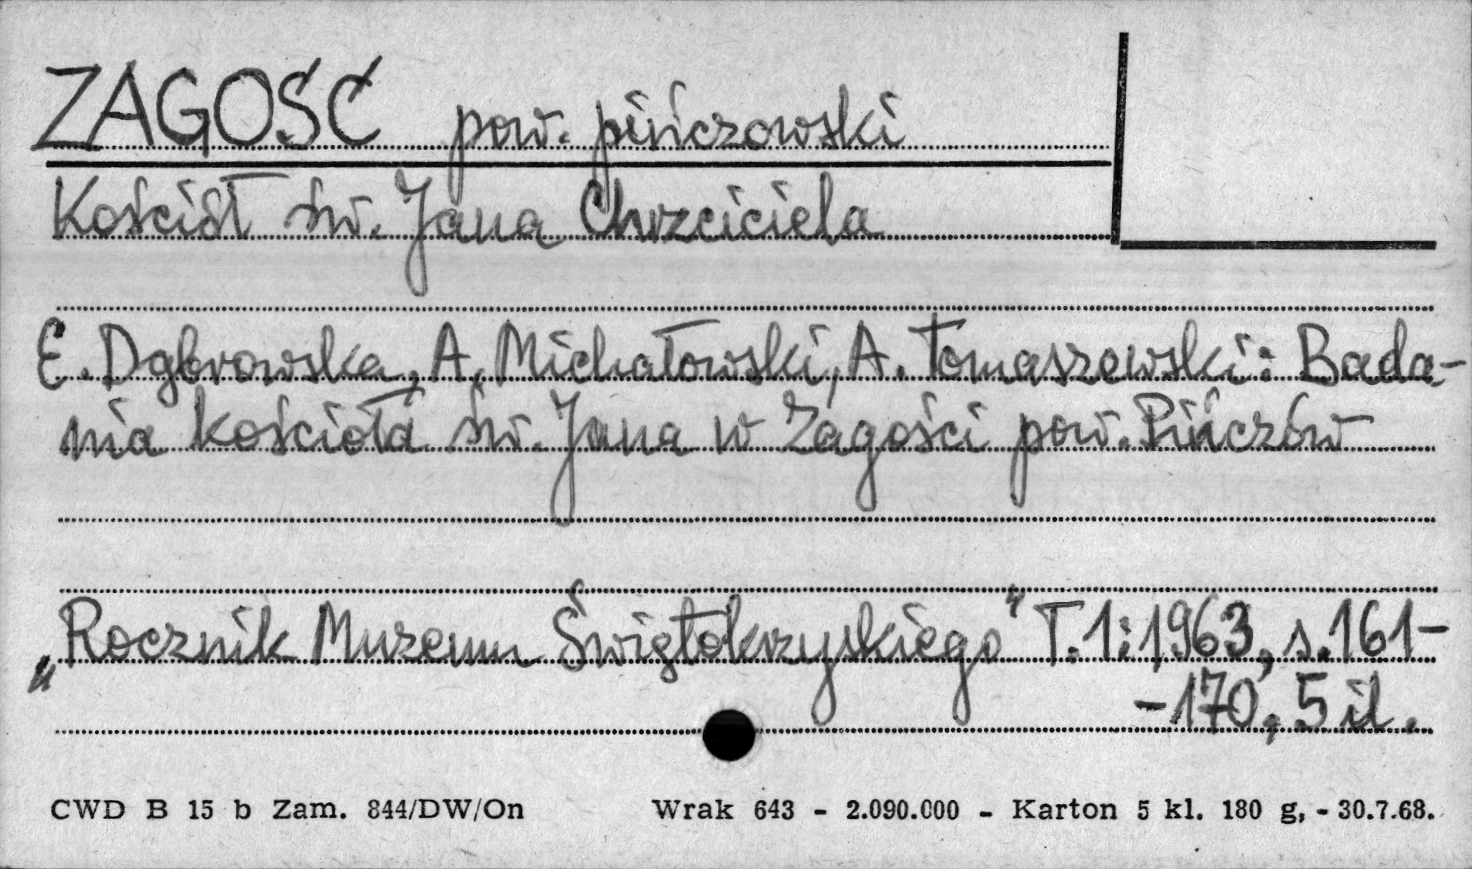 ZAGOŚĆ pow. pińczowski
Kościół św. Jana Chrzciciela
E. Dąbrowska, A. Michałowski, A. Tomaszewski: Bada-
nia kościoła św. Jana w Zagości pow. Pińczów
„Rocznik Muzeum Świętokrzyskiego" T.1:1963, s.161-
-170, 5 il.
CWD B 15 b Zam. 844/DW/On Wrak 643 - 2.090.000 - Karton 5 kl. 180 g, - 30.7.68.